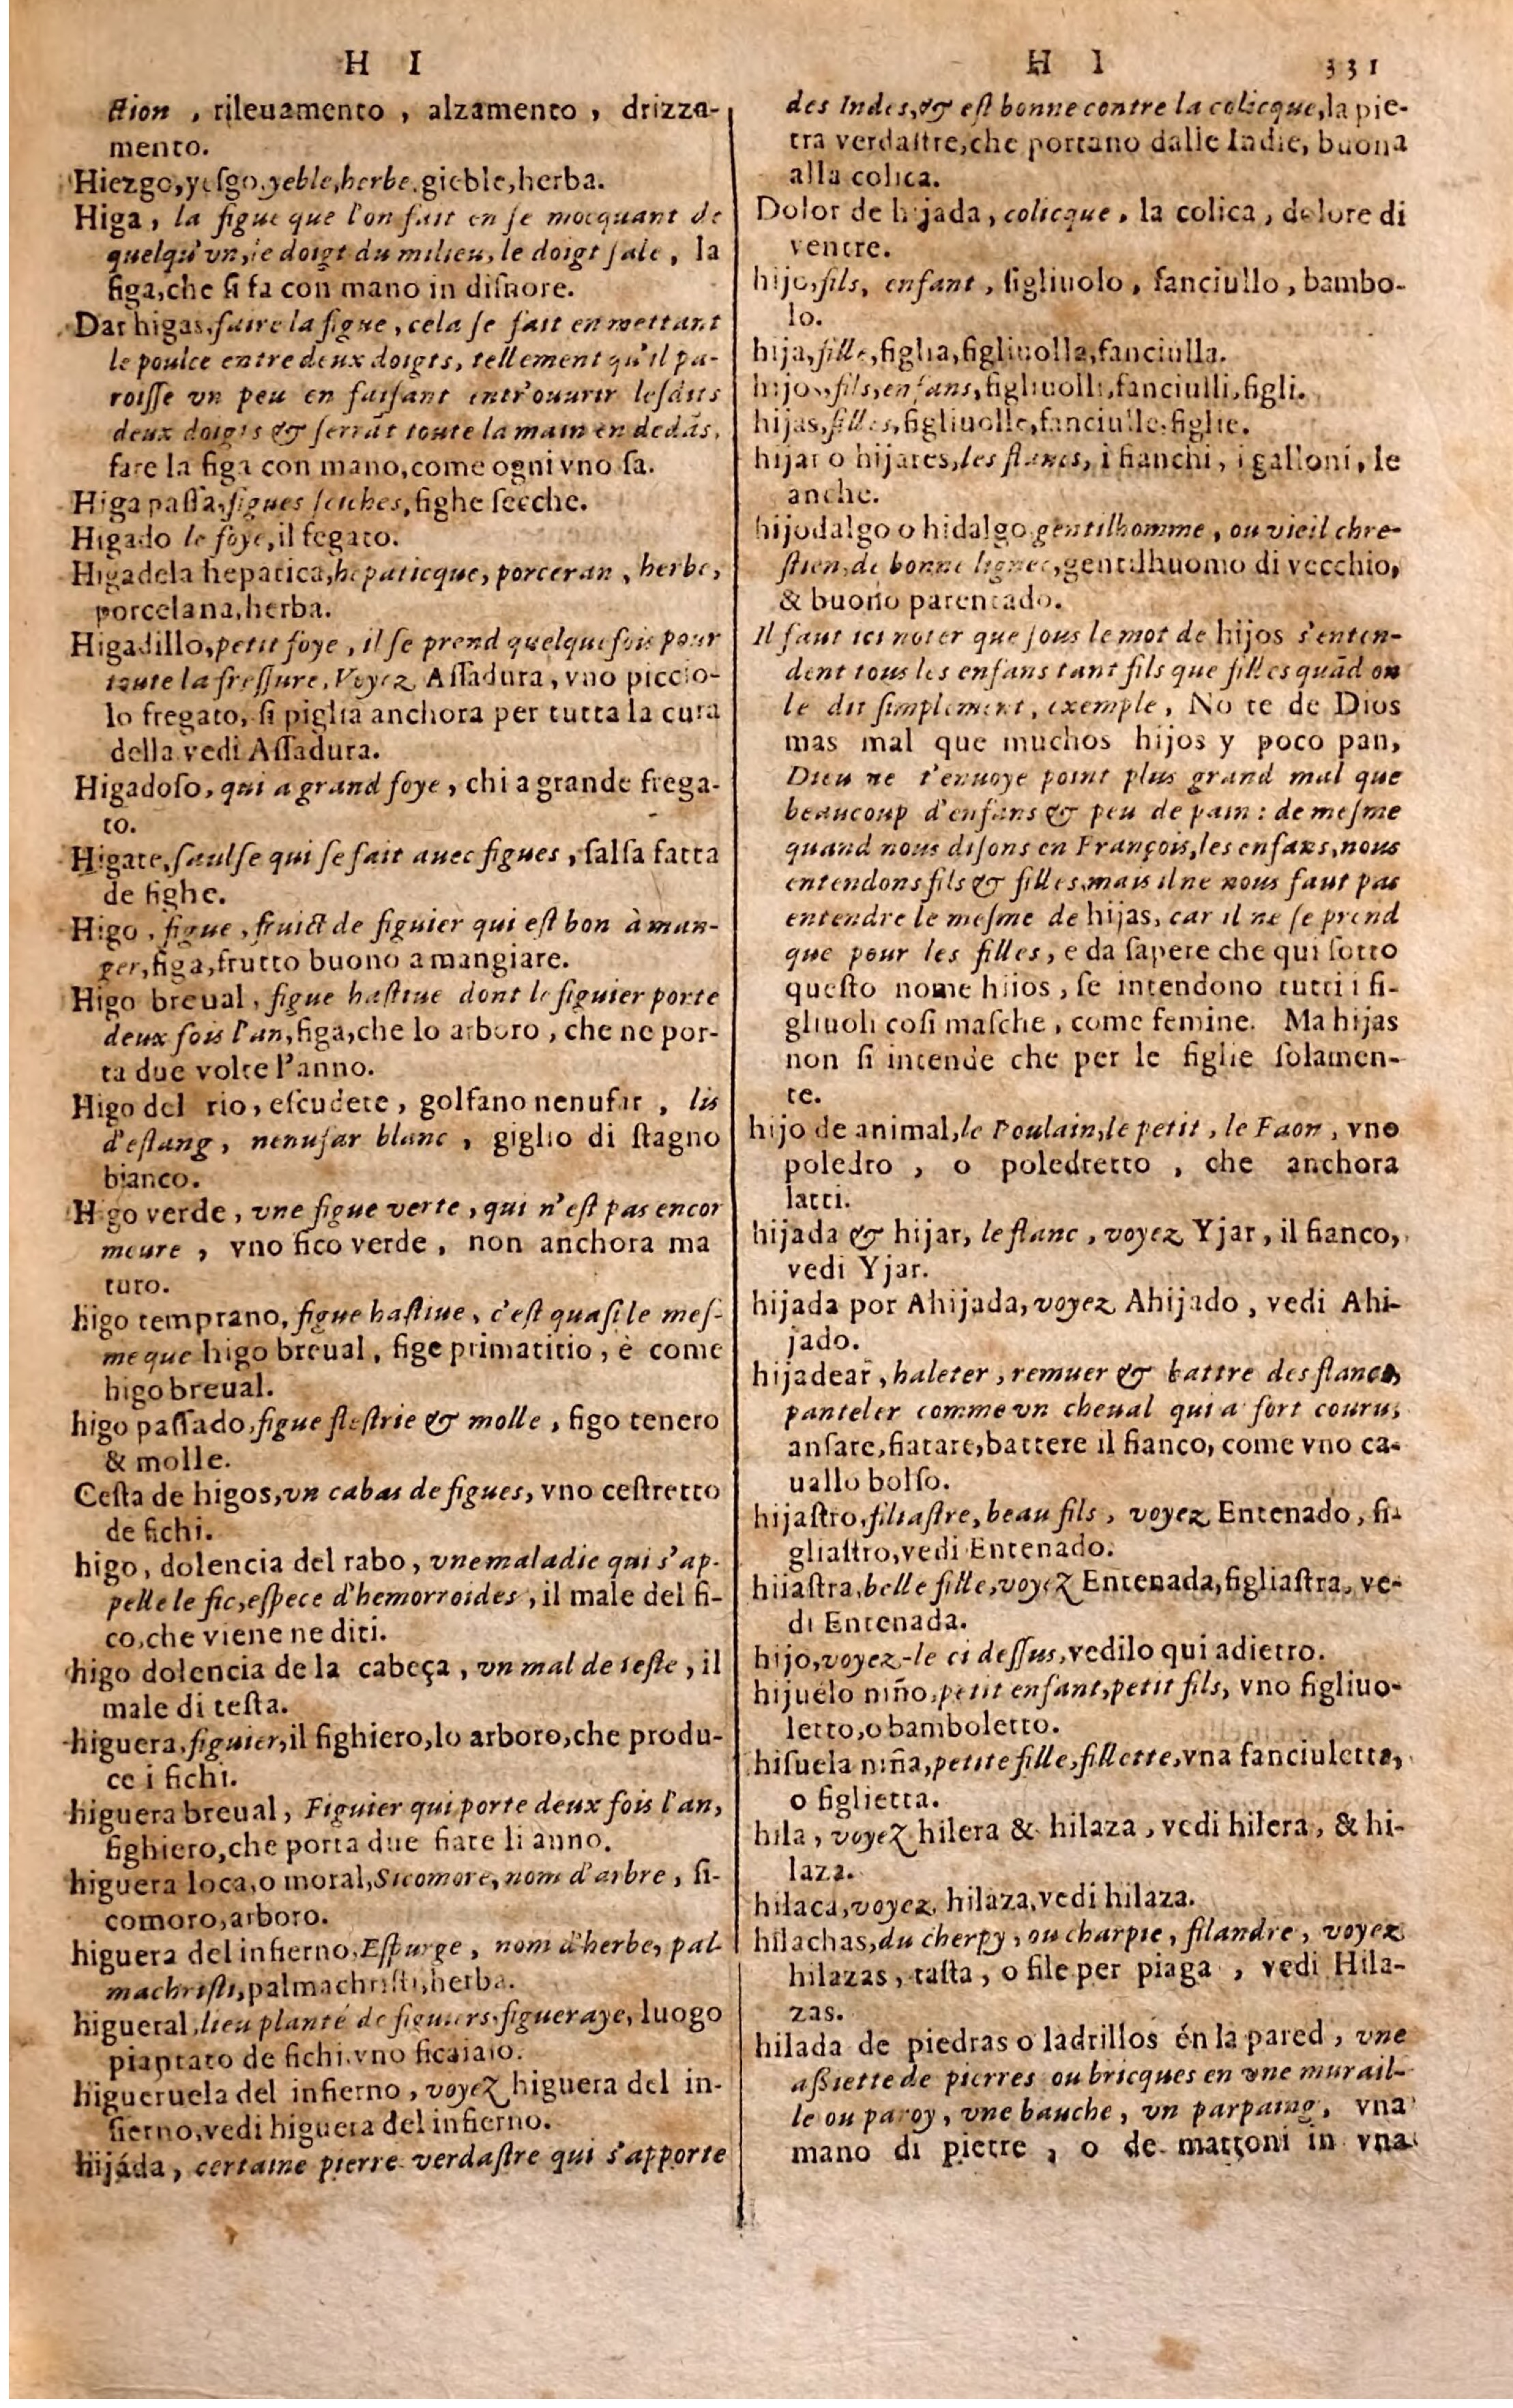 H I
H I 331
ction, rileuamento, alzamento, drizza-
mento.
Hiezgo, yesgo, yeble, herbe, gieble, herba.
Higa, la figue que l'on fait en se mocquant de
quelqu'vn, le doigt du milieu, le doigt sale, la
figa, che si fa con mano in disnore.
Dar higas, faire la figue, cela se fait en mettant
le poulce entre deux doigts, tellement qu'il pa-
roisse vn peu en faisant entr'ouurir lesdits
deux doigts & serrãt toute la main en dedãs,
fare la figa con mano, come ogni vno sa.
Higa passa, figues seiches, fighe secche.
Higado le foye, il fegato.
Higadela hepatica, hepaticque, porceran, herbe,
porcelana, herba.
Higadillo, petit foye, il se prend quelquefois pour
toute la fressure, Voyez Assadura, vno piccio-
lo fregato, si piglia anchora per tutta la cura
della vedi Assadura.
Higadoso, qui a grand foye, chi a grande frega-
to.
Higate, saulse qui se fait auec figues, salsa fatta
de fighe.
Higo, figue, fruict de figuier qui est bon à man-
ger, figa, frutto buono a mangiare.
Higo breual, figue hastiue dont le figuier porte
deux fois l'an, figa, che lo arboro, che ne por-
ta due volte l'anno.
Higo del rio, escudete, golfano nenufar, lis
d'estang, nenufar blanc, giglio di stagno
bianco.
Higo verde, vne figue verte, qui n'est pas encor
meure, vno fico verde, non anchora ma
turo.
higo temprano, figue hastiue, c'est quasi le mes-
me que higo breual, fige primatitio, è come
higo breual.
higo passado, figue flestrie & molle, figo tenero
& molle.
Cesta de higos, vn cabas de figues, vno cestretto
de fichi.
higo, dolencia del rabo, vne maladie qui s'ap-
pelle le fic, espece d'hemorroides, il male del fi-
co, che viene ne diti.
higo dolencia de la cabeça, vn mal de teste, il
male di testa.
higuera, figuier, il fighiero, lo arboro, che produ-
ce i fichi.
higuera breual, Figuier qui porte deux fois l'an,
fighiero, che porta due fiate li anno.
higuera loca, o moral, Sicomore, nom d'arbre, si-
comoro, arboro.
higuera del infierno, Espurge, nom d'herbe, pal-
machristi, palmachristi, herba.
higueral, lieu planté de figuiers, figueraye, luogo
piantato de fichi, vno ficaiaio.
higueruela del infierno, voyez higuera del in-
fierno, vedi higuera del infierno.
hijáda, certaine pierre verdastre qui s'apporte
des Indes, & est bonne contre la colicque, la pie-
tra verdastre, che portano dalle Indie, buona
alla colica.
Dolor de hijada, colicque, la colica, dolore di
ventre.
hijo, fils, enfant, figliuolo, fanciullo, bambo-
lo.
hija, fille, figlia, figliuolla, fanciulla.
hijos, fils, enfans, figliuolli, fanciulli, figli.
hijas, filles, figliuolle, fanciulle, figlie.
hijar o hijares, les flancs, i fianchi, i galloni, le
anche.
hijodalgo o hidalgo gentilhomme, ou vieil chre-
stien, de bonne lignee, gentilhuomo di vecchio,
& buono parentado.
Il faut ici noter que sous le mot de hijos s'enten-
dent tous les enfans tant fils que filles quãd on
le dit simplement, exemple, No te de Dios
mas mal que muchos hijos y poco pan,
Dieu ne t'enuoye point plus grand mal que
beaucoup d'enfans & peu de pain: de mesme
quand nous disons en François, les enfans, nous
entendons fils & filles, mais il ne nous faut pas
entendre le mesme de hijas, car il ne se prend
que pour les filles, e da sapere che qui sotto
questo nome hiios, se intendono tutti i fi-
gliuoli cosi masche, come femine. Ma hijas
non si intende che per le figlie solamen-
te.
hijo de animal, le Poulain, le petit, le Faon, vno
poledro, o poledretto, che anchora
latti.
hijada & hijar, le flanc, voyez Yjar, il fianco,
vedi Yjar.
hijada por Ahijada, voyez Ahijado, vedi Ahi-
jado.
hijadear, haleter, remuer & battre des flancs,
panteler comme vn cheual qui a fort couru,
ansare, fiatare, battere il fianco, come vno ca-
uallo bolso.
hijastro, filiastre, beau fils, voyez Entenado, fi-
gliastro, vedi Entenado.
hiiastra, belle fille, voyez Entenada, figliastra, ve-
di Entenada.
hijo, voyez-le ci dessus, vedilo qui adietro.
hijuelo niño, petit enfant, petit fils, vno figliuo-
letto, o bamboletto.
hisuela niña, petite fille, fillette, vna fanciuletta,
o figlietta.
hila, voyez hilera & hilaza, vedi hilera, & hi-
laza.
hilaca, voyez hilaza, vedi hilaza.
hilachas, du cherpy, ou charpie, filandre, voyez
hilazas, tasta, o file per piaga, vedi Hila-
zas.
hilada de piedras o ladrillos én la pared, vne
assiette de pierres ou bricques en vne murail-
le ou paroy, vne bauche, vn parpaing, vna
mano di pietre, o de mattoni in vna